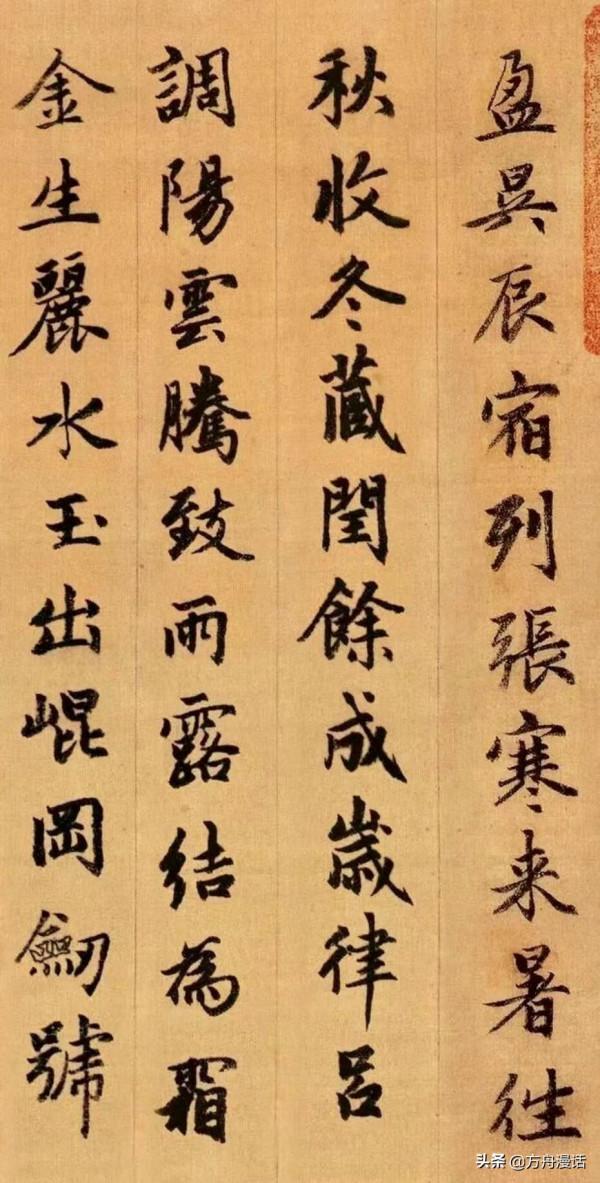 盈昃辰宿列張寒来暑徃
秋收冬藏閏餘成歲律呂
調陽雲騰致雨露結為霜
金生麗水玉出崐岡劒號
头条 @方舟漫话